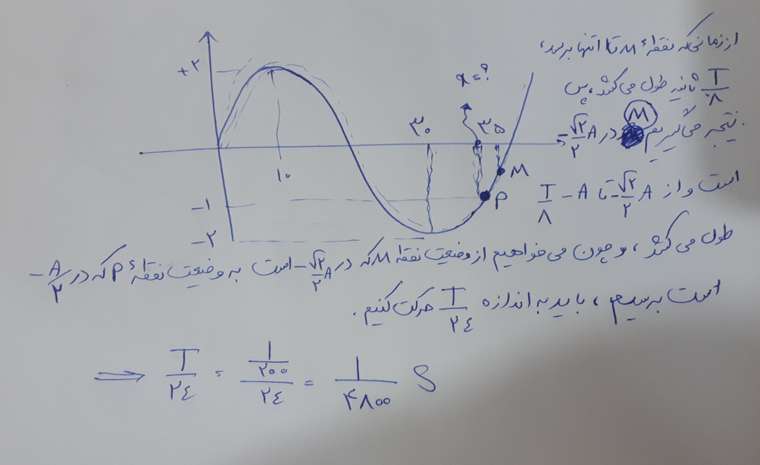 از زمانی که نقطهٔ M تا انتها برسد،
T/۸ ثانیه طول می‌کشد، پس
نتیجه می‌گیریم M در -√۲/۲ A
است و از -√۲/۲ A تا -A T/۸
طول می‌کشد، و چون می‌خواهیم از وضعیت نقطهٔ M که در -√۲/۲ A است به وضعیت نقطهٔ P که در -A/۲
است برسیم، باید به اندازه T/۲۴ حرکت کنیم.
+۲
x=?
۳۰
۳۵
۱۰
M
P
-۱
-۲
⟹ T/۲۴ = (۱/۲۰۰)/۲۴ = ۱/۴۸۰۰ S